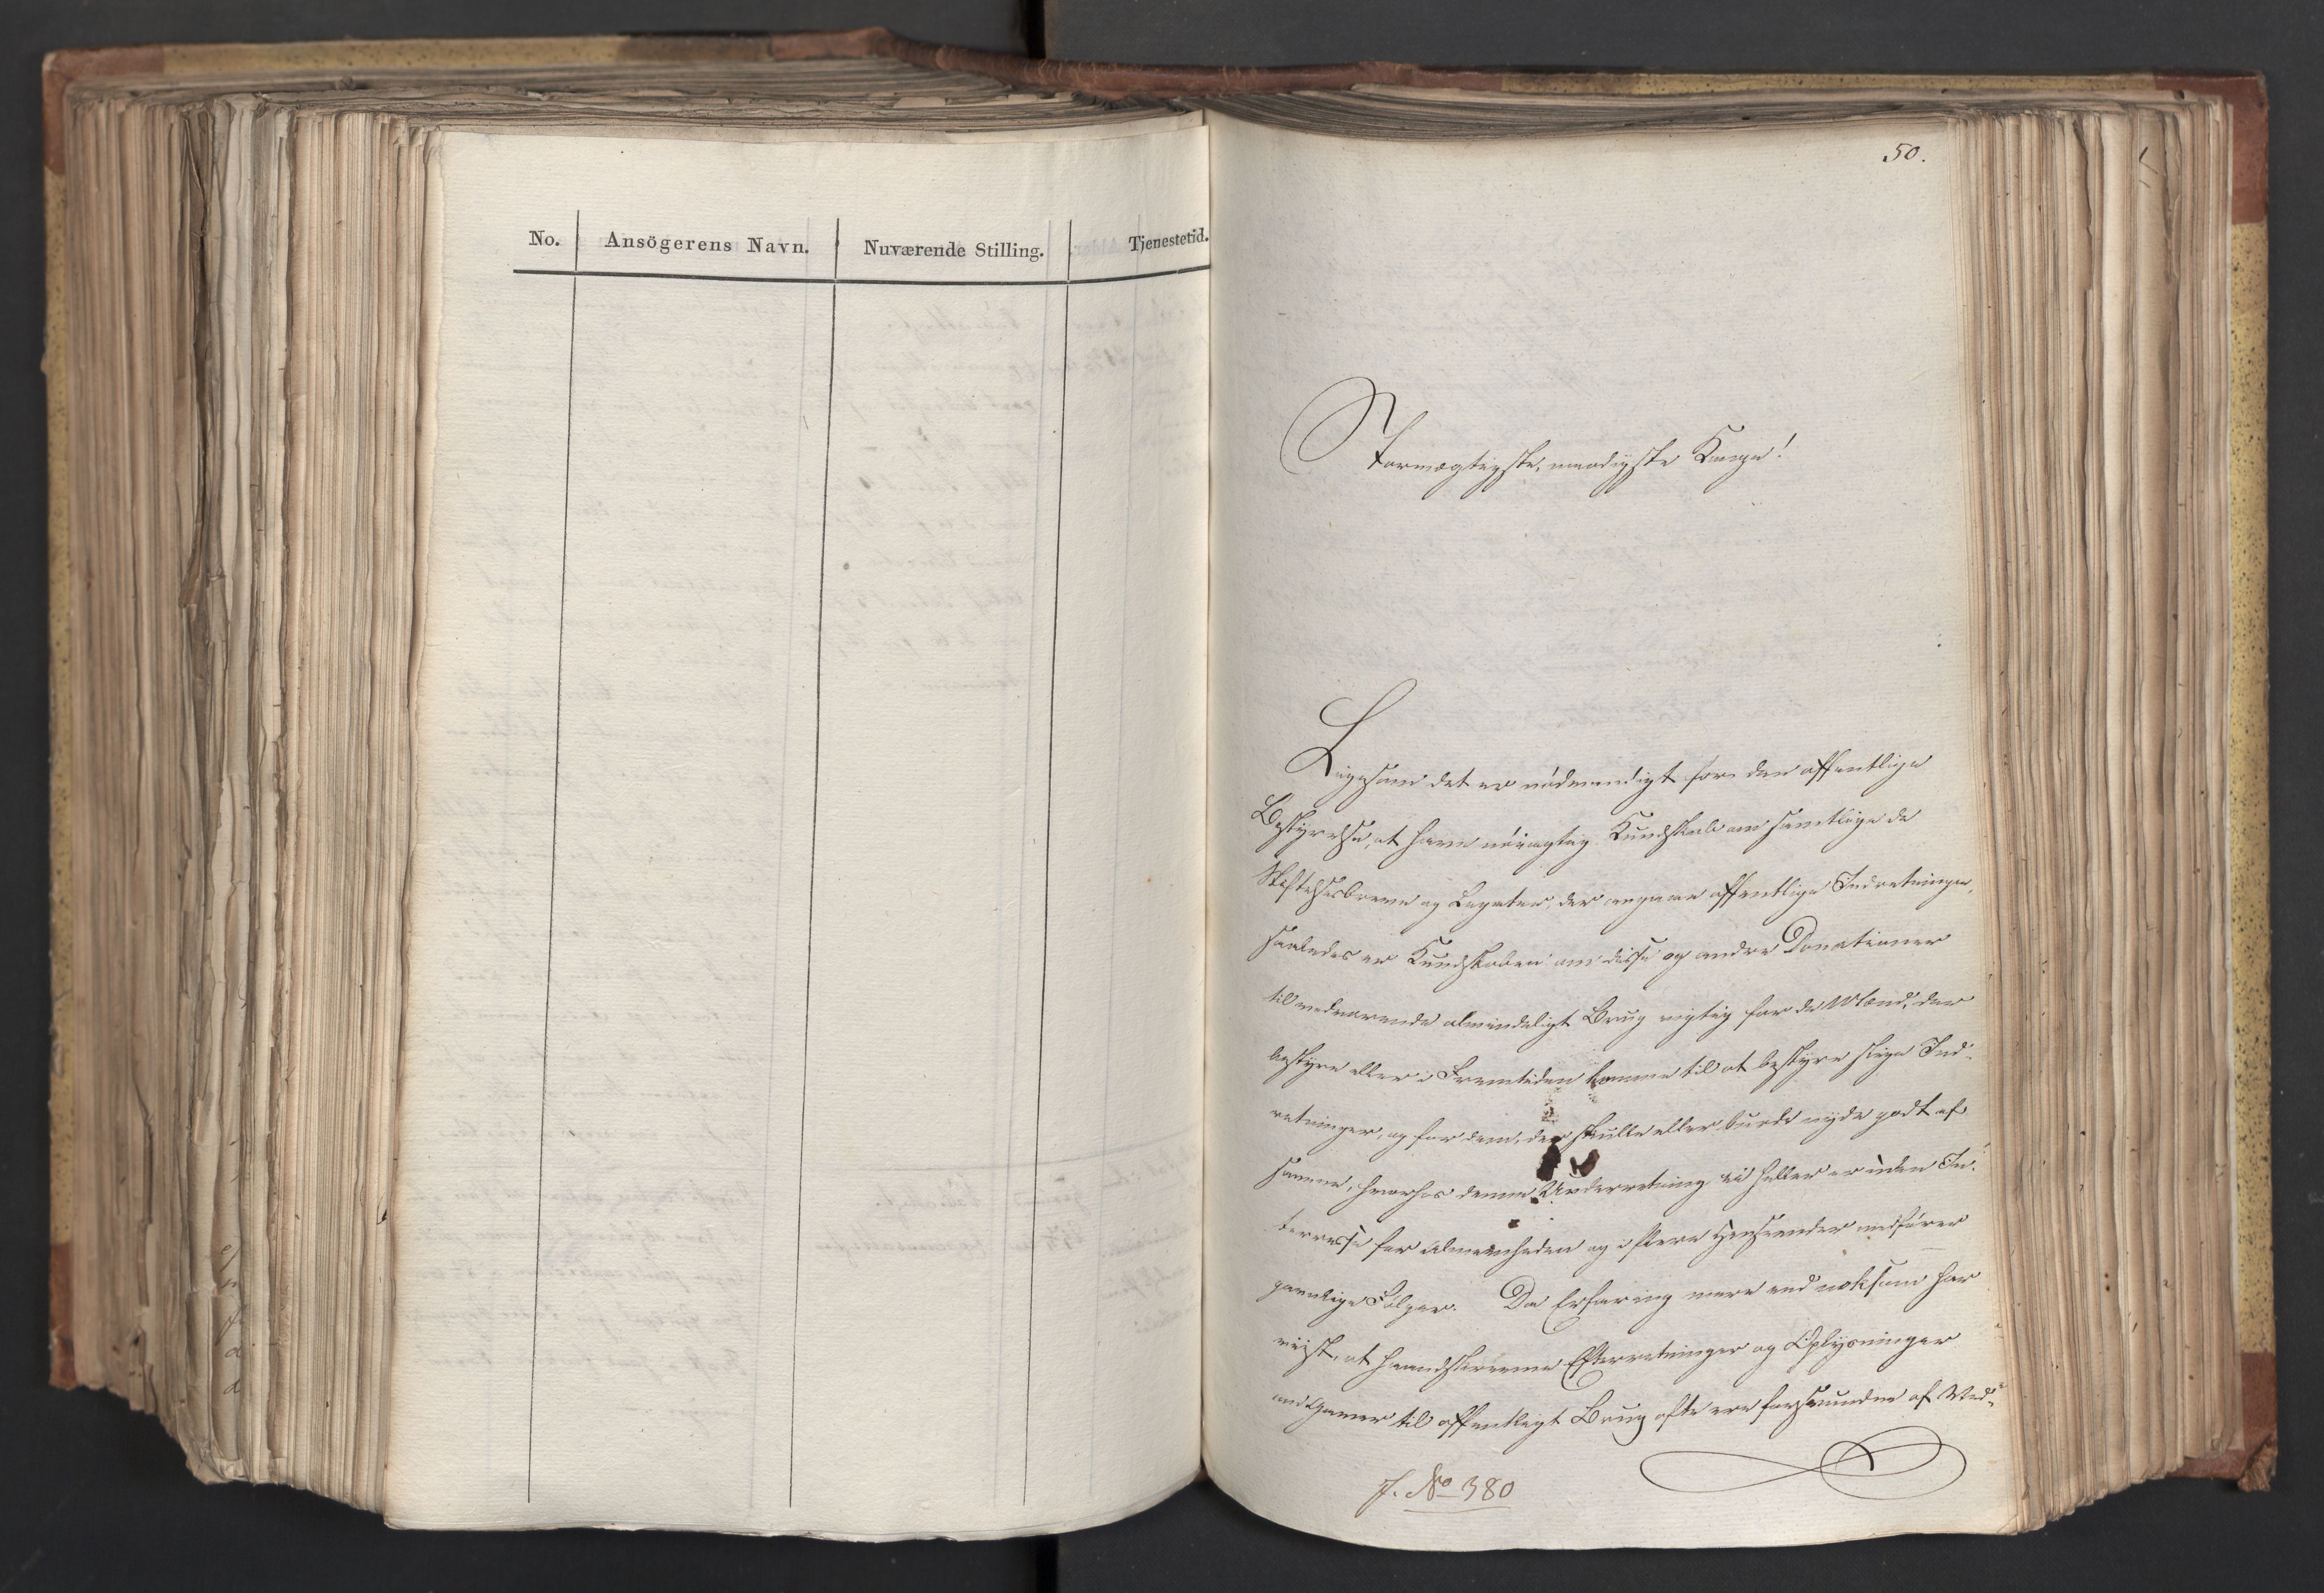 No. Ansögerens Navn. Nuværende Stilling. Tjenestetid.
50.
Stormægtigste, naadigste Konge!
Ligesom det er nödvendigt for den offentlige
Bestyrelse, at have nöiagtig Kundskab om samtlige de
Stiftelsesbreve og Legater, der angaae offentlige Indretninger,
saaledes er Kundskaben om disse og andre Donationer
til vedvarende almindeligt Brug vigtig for de Mænd, der
bestyre eller i Fremtiden komme til at bestyre slige Ind-
retninger, og for dem, der skulle eller burde nyde godt af
samme, hvorhos denne Underretning ei heller er uden In-
terresse for Almeenheden og i flere Henseender medförer
gavnlige Fölger. Da Erfaring mere end noksom har
viist, at haandskrevne Efterretninger og Oplysninger
om Gaver til offentligt Brug ofte ere forsvundne af Ved-
J. No 380